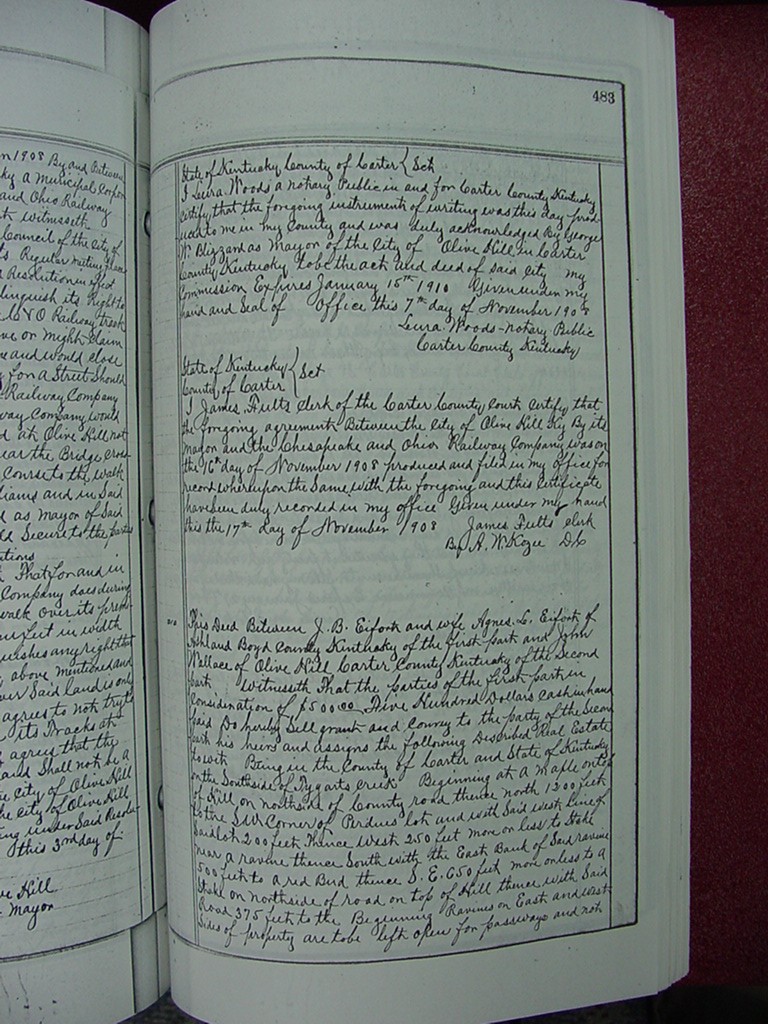 n 1908 By and Between
ky a Municipal Corpor
and Ohio Railway
witnesseth
Council of the City of
Regular meeting
Resolution in effect
linquish its Right to
C & O Railway track
ve or might claim
e and would close
for a Street Should
Railway Company
way Company would
d at Olive Hill not
ear the Bridge cross
Course to the walk
liams and in Said
d as Mayor of Said
ld Secure to the parties
itions
That for and in
Company does during
walk over its prem
in width
uishes any right that
above mentioned and
ver Said land is only
agrees to not
its Tracks at
agrees that the
and Shall not be a
e City of Olive Hill
he City of Olive Hill
ing under Said Resolu
this 3rd day of
ve Hill
Mayor
483
State of Kentucky County of Carter { Sct
I Lura Woods a Notary Public in and for Carter County Kentucky
Certify, that the foregoing instrument of writing was this day prod
uced to me in my County and was duly acknowledged By George
W. Blizzard as Mayor of the City of Olive Hill in Carter
County Kentucky to be the act and deed of said City my
Commission Expires January 15th 1910 Given under my
hand and Seal of Office this 7th day of November 1908
Lura Woods - Notary Public
Carter County Kentucky
State of Kentucky { Sct
County of Carter
I James Fults Clerk of the Carter County Court Certify that
the foregoing agreement Between the City of Olive Hill Ky By its
Mayor and the Chesapeake and Ohio Railway Company was on
the 16th day of November 1908 produced and filed in my office for
record whereupon the Same with the foregoing and this Certificate
have been duly recorded in my office Given under my hand
this the 17th day of November 1908 James Fults Clerk
By A. W. Kozee D.C
This Deed Between J. B. Eifort and wife Agnes L. Eifort of
Ashland Boyd County Kentucky of the first part and John
Wallace of Olive Hill Carter County Kentucky of the Second
part Witnesseth That the parties of the first part in
Consideration of $500.00 Five Hundred Dollars Cash in hand
paid Do hereby Sell grant and Convey to the party of the Second
part his heirs and assigns the following Described Real Estate
towit Being in the County of Carter and State of Kentucky
on the Southside of Tygarts Creek Beginning at A Maple on top
of Hill on northside of County road thence north 1200 feet
to the S.W. Corner of Perdues lot and with Said west line of
Said lot 200 feet Thence West 250 feet more or less to Stake
near a ravine thence South with the East Bank of Said ravine
500 feet to a red Bud thence S. E. 650 feet more or less to A
Stake on northside of road on top of Hill thence with Said
Road 375 feet to the Beginning Ravines on East and West
Sides of property are to be left open for passways and not